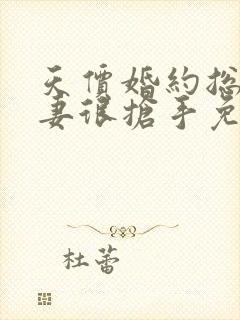 天價婚約總
妻很搶手免
杜蕾